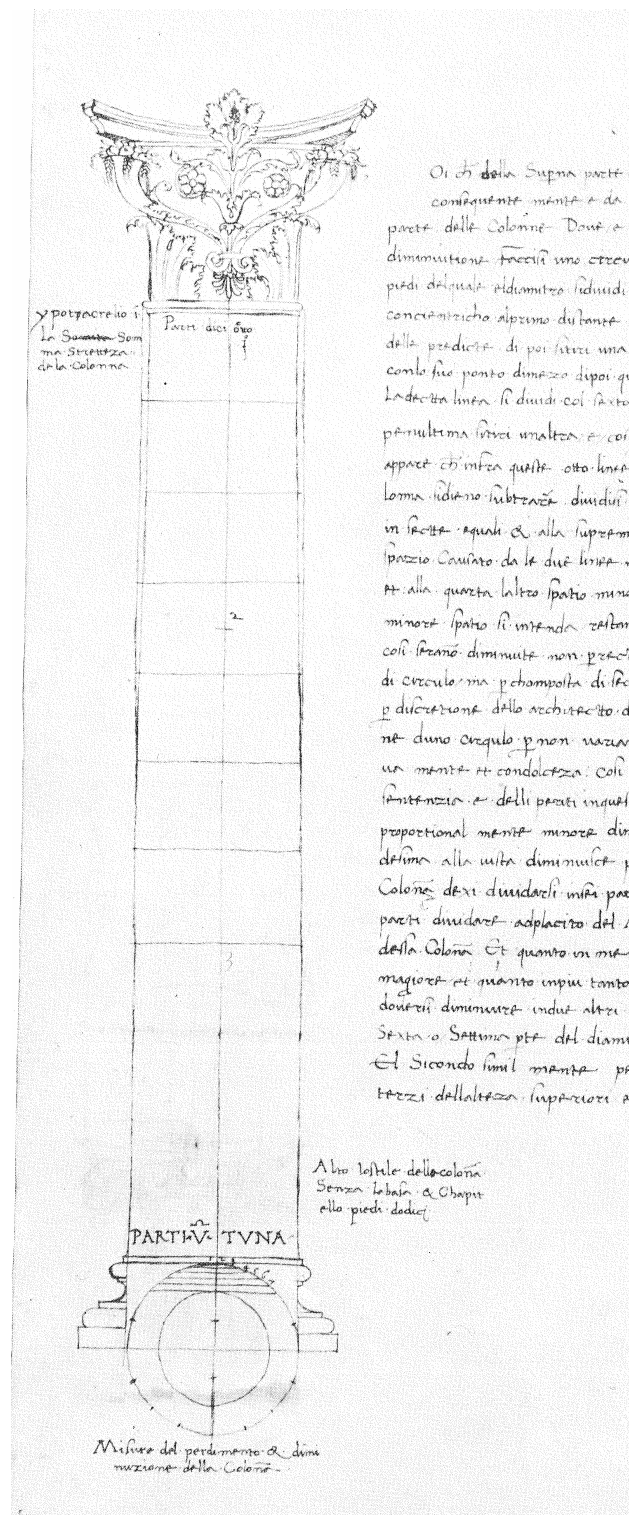 Oi ch della Supna parte
consequente mente e da
parte delle Colonne Dove e
diminuitione facciasi uno circu
piedi delquale eldiamitro sidividi
concientricho alprimo distante
delle predicte di poi sitiri una
conlo suo ponto dimezo dipoi qu
La decta linea si dividi col sexto
penultima sitiri unaltra e cosi
appare ch infra queste otto linee
lonna sidieno subtrare dividisi
in secte equali & alla suprem
spazzio Causato da le due linee
et alla quarta laltro spatio mino
minore spatio si intenda restan
cosi serano diminuite non p rect
di circulo ma p chomposta di sec
p discretione dello architecto d
ne duno cirqulo p non variar
va mente et condolceza Cosi
sententia e delli periti inques
proportional mente minore dim
desima alla vista diminuisce p
Colona dexi dividarsi insei par
parti dividare adplacito del A
della Colona Et quanto in me
magiore et quanto inpiu tanto
doversi diminuire indue altri
Sexta o Settima pte del diami
El Sicondo simil mente pe
terzi dellalteza superiori e
ypotracrelio i
La Som
ma Stretteza
de la Colonna
Parti dici ovo
2
3
Alto lostile della colona
Senza labasa & Chapit
ello piedi dodici
PARTI V TUNA
Misure del perdimento & dimi
nuzione della Colone